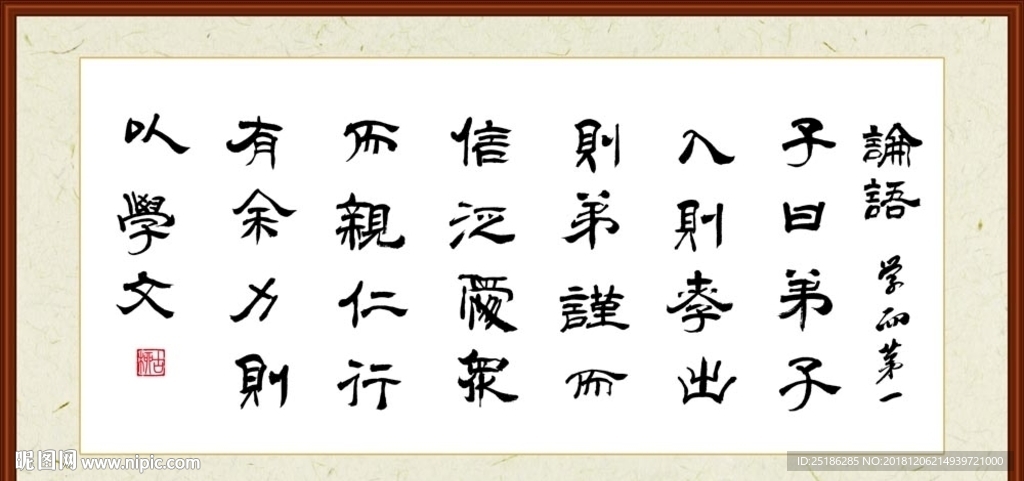 論語 学而第一
子曰弟子
入則孝出
則弟謹而
信泛愛眾
而親仁行
有余力則
以學文
昵图网 www.nipic.com
ID:25186285 NO:20181206214939721000